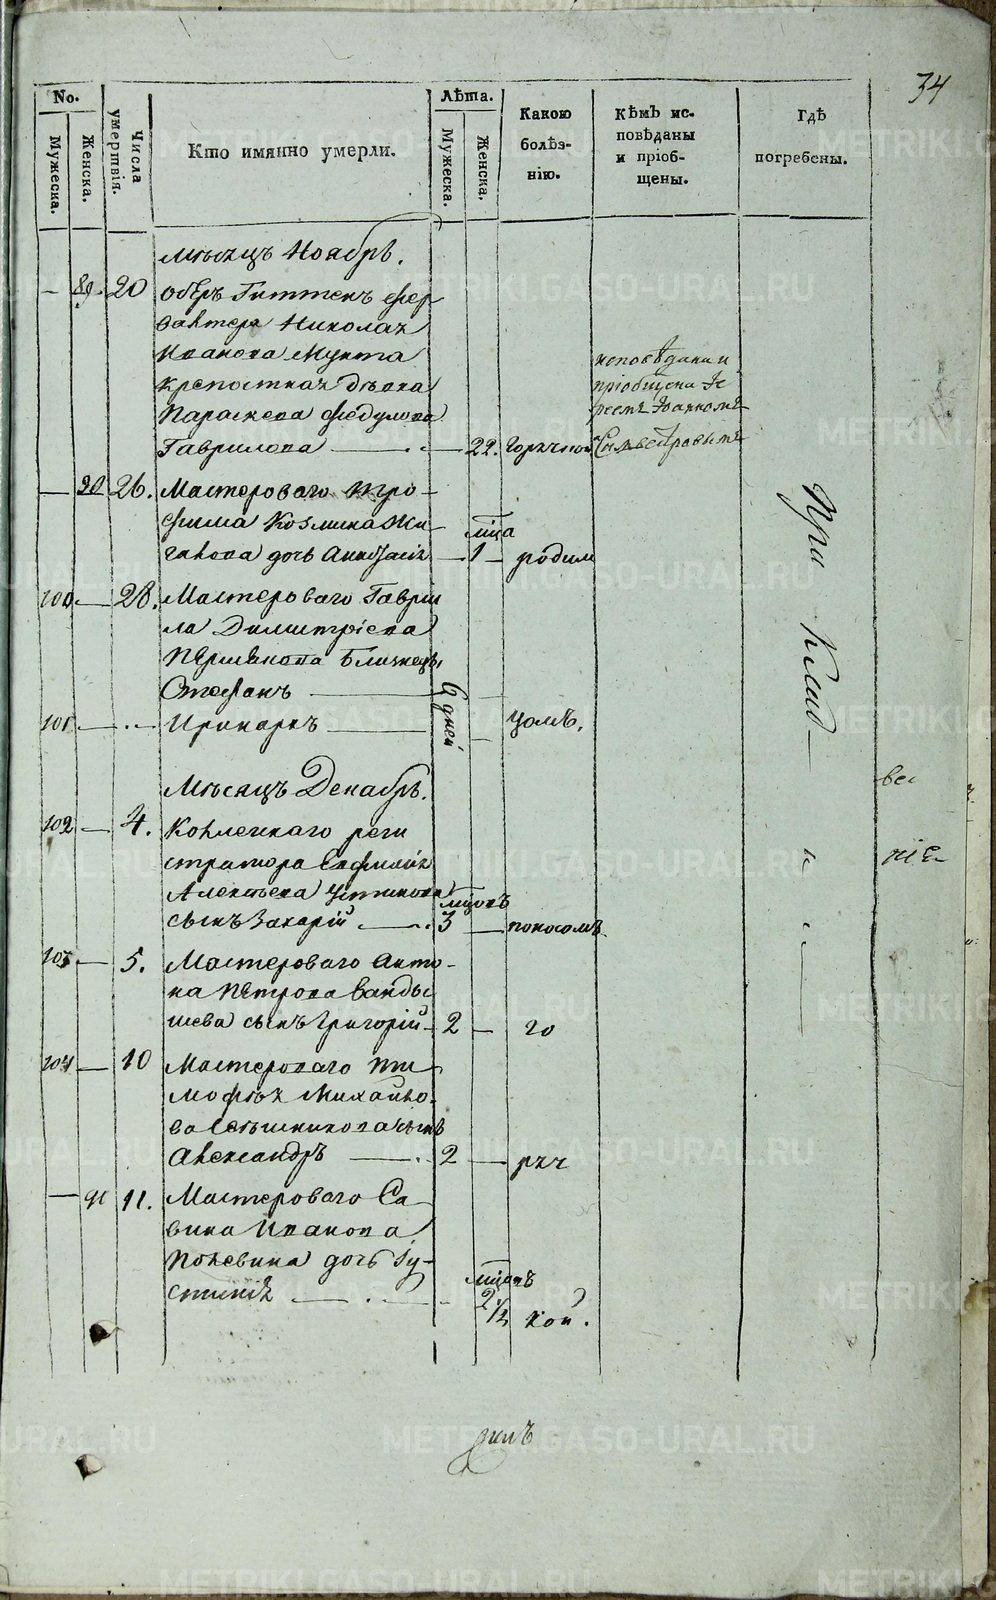 34
No.
Мужеска.
Женска.
Числа умертвія.
Кто имянно умерли.
Лѣта.
Мужеска.
Женска.
Какою болѣз-
нію.
Кѣмъ ис-
повѣданы
и пріоб-
щены.
Гдѣ
погребены.
Мѣсяцъ Ноябрь.
— 89. 20 Оберъ Гиттенъ фер
Николая
Иванова Мунта
крепостная дѣвка
Параскева Федулова
Гаврилова — 22. горячкою
исповѣдана и
пріобщена Іе
реемъ Іоанномъ
— 90 26. Мастероваго Тро-
фима Козмина Жи-
ганова дочь — мца 1 — родим
100 — 28. Мастероваго Гаврі
ла Димитріева
близнецы
Стефанъ — 6 дней
101 — Иринархъ —
При
Клад
Мѣсяцъ Декабрь.
102 — 4. Коллежскаго реги
стратора
Алексѣева Устинова
сынъ Захарій — мцовъ 3 — поносомъ
103 — 5. Мастероваго Анто-
на Петрова Ванды
шева сынъ Григорій — 2 — го
104 — 10 Мастероваго Ти-
мофѣя Михайло-
ва сынъ
Александръ — 2 — ряч
— 91 11. Мастероваго Са-
вина Иванова
дочь Іу-
стинія — мцовъ 2 1/2 кой.